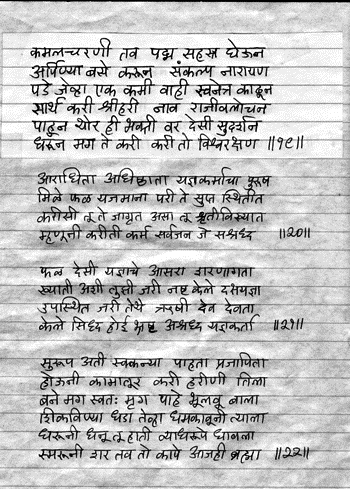 कमलचरणी तव पद्म सहस्त्र घेऊन
अर्पिण्या बसे करून संकल्प नारायण
पडे जेव्हा एक कमी वाही स्वनेत्र काढून
सार्थ करी श्रीहरी नाव राजीवलोचन
पाहून थोर ही भक्ती वर देसी सुदर्शन
धरून मग ते करी करी तो विश्वरक्षण ॥१९॥
आराधिता अधिष्ठाता यज्ञकर्माचा पुरूष
मिले फळ यजमाना परी ते सुप्त स्थितीत
करीसी तू ते जागृत असा तू श्रृती विख्यात
म्हणूनी करीती कर्म सर्वजन जे सश्रध्द ॥२०॥
फळ देसी यज्ञाचे आसरा शरणागता
ख्याती अशी तुझी जरी नष्ट केले दक्षयज्ञा
उपस्थित जरी तेथे ऋषी देव देवता
केले सिध्द होई भ्रष्ट अश्रध्द यज्ञकर्ता ॥२१॥
सुरूप अती स्वकन्या पाहता प्रजापिता
होऊनी कामातूर करी हरीणी तिला
बने मग स्वतः मृग पाहे भूलवू बाला
शिकविण्या धडा तेव्हा धमकावूनी त्याला
धरूनी धनू तू हाती व्याधरूपे धावला
स्मरूनी शर तव तो कापे आजही ब्रह्मा ॥२२॥